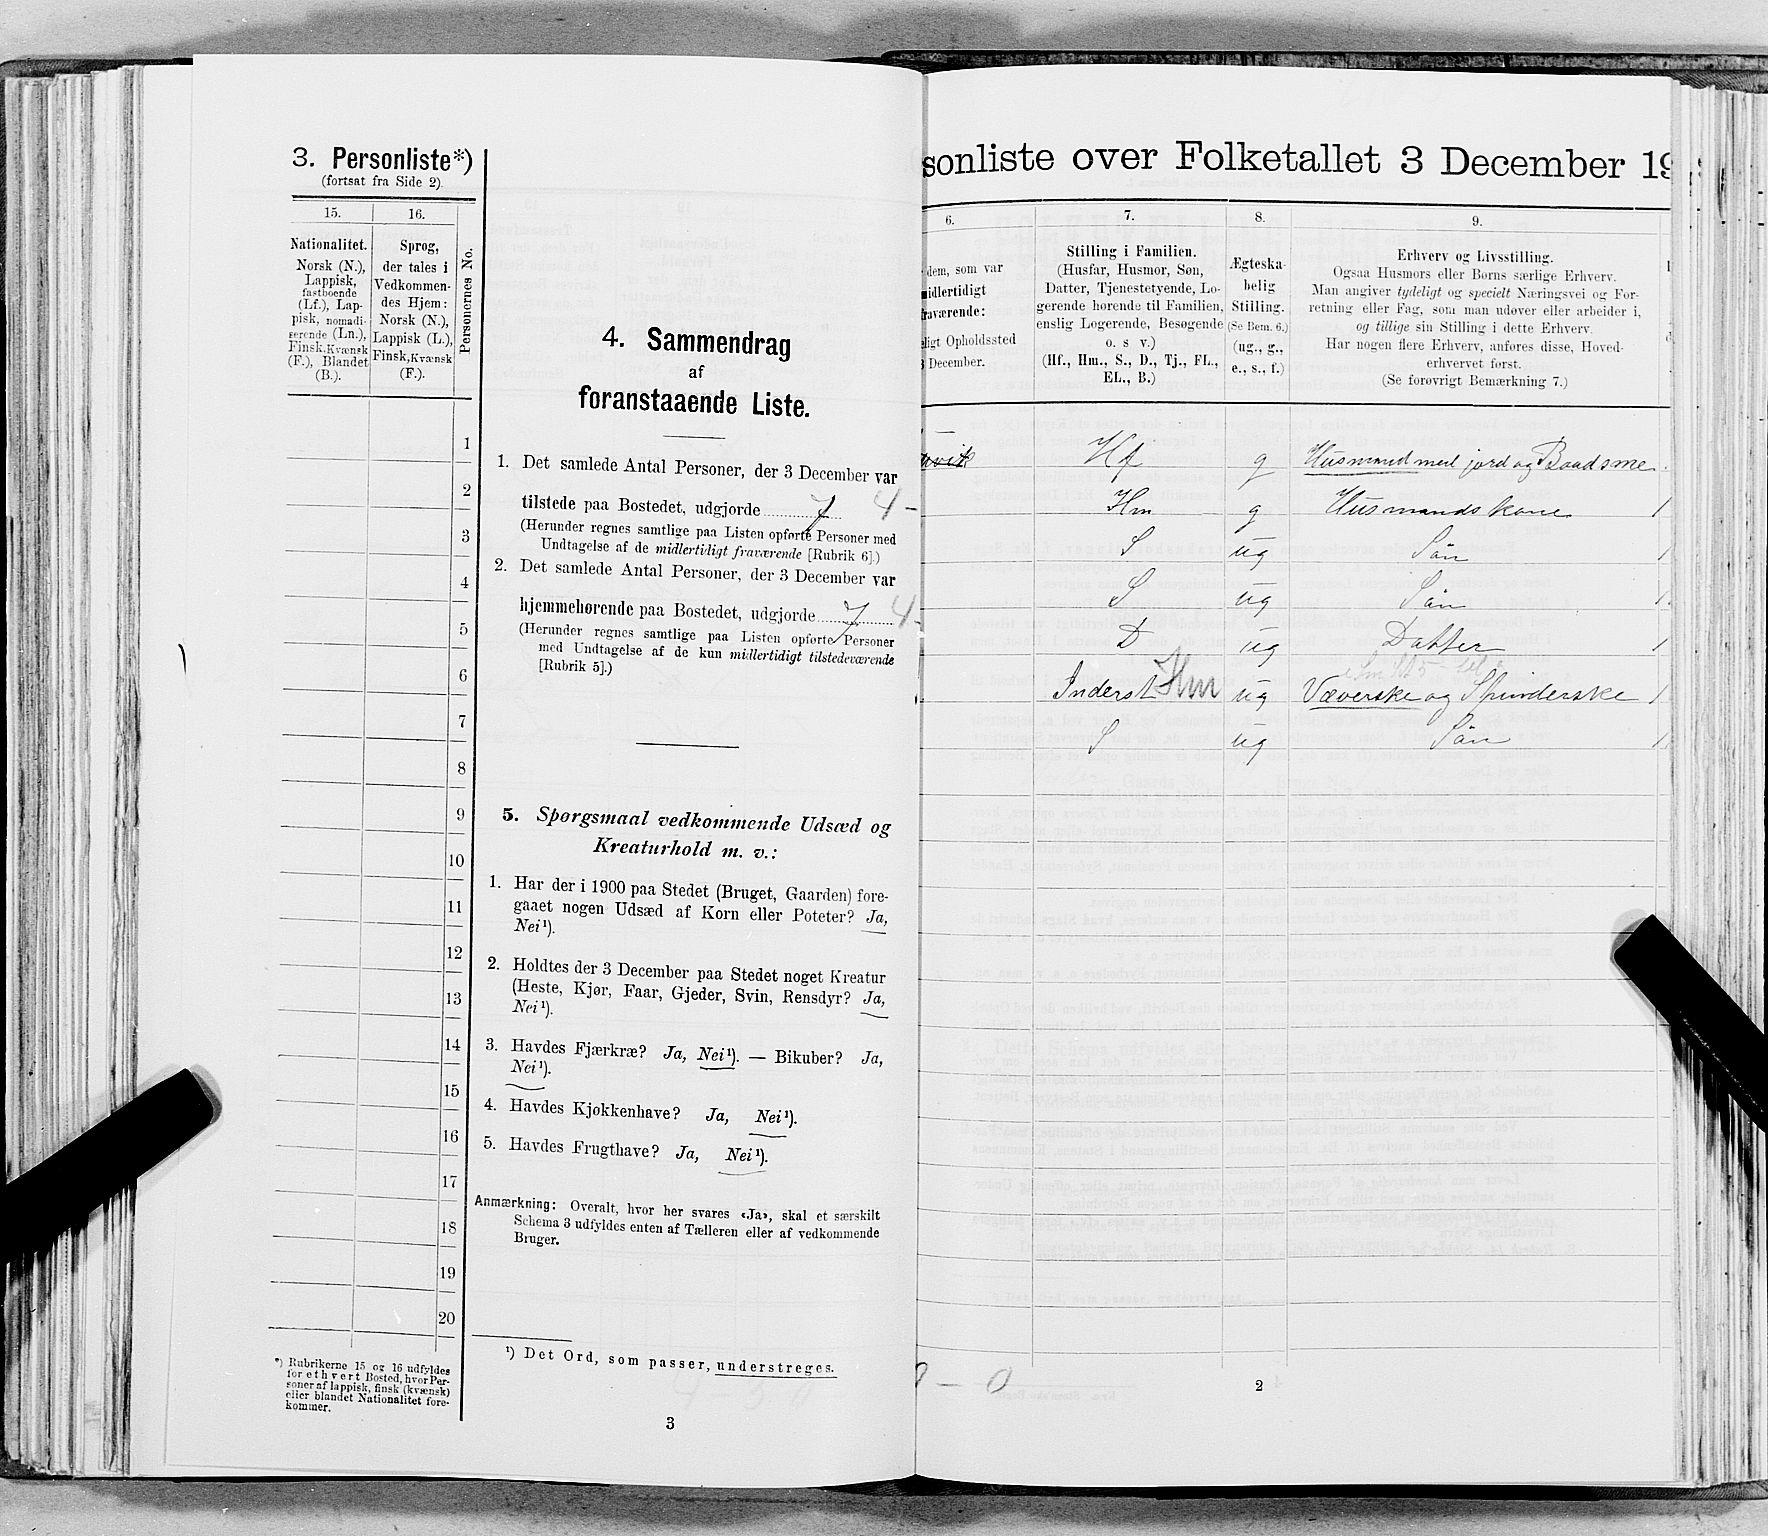 3. Personliste*)
(fortsat fra Side 2).
15.
16.
Nationalitet.
Norsk (N.),
Lappisk,
fastboende
(Lf.), Lap-
pisk, nomadi-
serende (Ln.),
Finsk, Kvænsk
(F.), Blandet
(B.).
Sprog,
der tales i
Vedkommen-
des Hjem:
Norsk (N.),
Lappisk (L.),
Finsk, Kvænsk
(F.).
Personernes No.
1
2
3
4
5
6
7
8
9
10
11
12
13
14
15
16
17
18
19
20
*) Rubrikerne 15 og 16 udfyldes
for ethvert Bosted, hvor Per-
soner af lappisk, finsk (kvænsk)
eller blandet Nationalitet fore-
kommer.
4. Sammendrag
af
foranstaaende Liste.
1. Det samlede Antal Personer, der 3 December var
tilstede paa Bostedet, udgjorde 7 4 -
(Herunder regnes samtlige paa Listen opførte Personer med
Undtagelse af de midlertidigt fraværende [Rubrik 6].)
2. Det samlede Antal Personer, der 3 December var
hjemmehørende paa Bostedet, udgjorde 7 4 -
(Herunder regnes samtlige paa Listen opførte Personer
med Undtagelse af de kun midlertidigt tilstedeværende
[Rubrik 5].)
5. Spørgsmaal vedkommende Udsæd og
Kreaturhold m. v.:
1. Har der i 1900 paa Stedet (Bruget, Gaarden) fore-
gaaet nogen Udsæd af Korn eller Poteter? Ja,
Nei¹).
2. Holdtes der 3 December paa Stedet noget Kreatur
(Heste, Kjør, Faar, Gjeder, Svin, Rensdyr? Ja,
Nei¹).
3. Havdes Fjærkræ? Ja, Nei¹). — Bikuber? Ja,
Nei¹).
4. Havdes Kjøkkenhave? Ja, Nei¹).
5. Havdes Frugthave? Ja, Nei¹).
Anmærkning: Overalt, hvor her svares «Ja», skal et særskilt
Schema 3 udfyldes enten af Tælleren eller af vedkommende
Bruger.
¹) Det Ord, som passer, understreges.
3
sonliste over Folketallet 3 December 19
6.
7.
8.
9.
dem, som var
midlertidigt
fraværende:
ligt Opholdssted
3 December.
Stilling i Familien.
(Husfar, Husmor, Søn,
Datter, Tjenestetyende, Lo-
gerende hørende til Familien,
enslig Logerende, Besøgende
o. s v.)
(Hf., Hm., S., D., Tj., FL.,
EL., B.)
Ægteska-
belig
Stilling.
(Se Bem. 6.)
(ug., g.,
e., s., f.)
Erhverv og Livsstilling.
Ogsaa Husmors eller Børns særlige Erhverv.
Man angiver tydeligt og specielt Næringsvei og For-
retning eller Fag, som man udøver eller arbeider i,
og tillige sin Stilling i dette Erhverv.
Har nogen flere Erhverv, anføres disse, Hoved-
erhvervet først.
(Se forøvrigt Bemærkning 7.)
vik Hf g Husmand med jord og Baadsme
Hm g Husmandskone 1
S ug Søn 1
S ug Søn 1
D ug Datter 1
Inderst Hm ug Væverske og Spinderske 1
S ug Søn 1
0 - 0
2